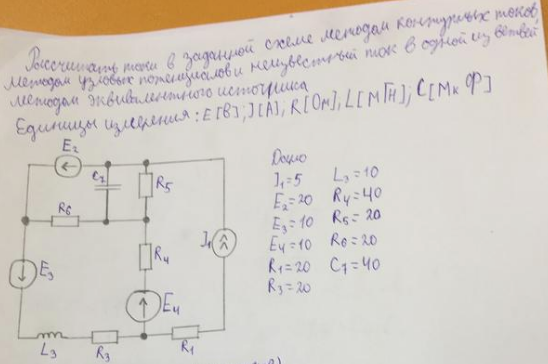 Рассчитать токи в заданной схеме методом контурных токов,
методом узловых потенциалов и неизвестный ток в одной из ветвей
методом эквивалентного источника
Единицы измерения: E[В]; J[А], R[Ом], L[мГн]; C[мкФ]
E2
C7
R5
R6
J1
E3
R4
E4
L3
R3
R1
Дано
J1=5
E2=20
E3=10
E4=10
R1=20
R3=20
L3=10
R4=40
R5=20
R6=20
C7=40